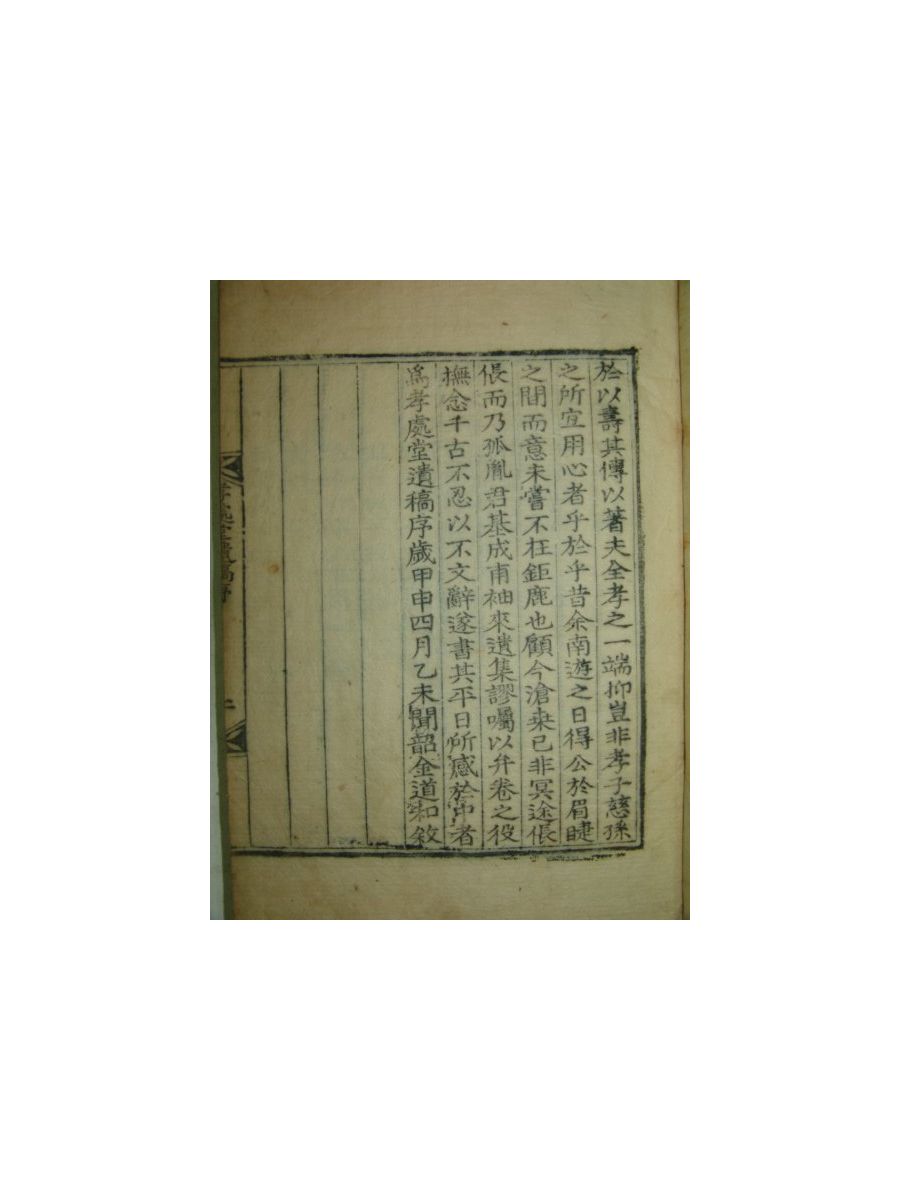 於以壽其傳以著夫全孝之一端抑豈非孝子慈孫
之所宜用心者乎於乎昔余南遊之日得公於眉睫
之間而意未嘗不在鉅鹿也顧今滄桒已非冥途倀
倀而乃孤胤君基成甫袖來遺集謬囑以弁卷之役
撫念千古不忍以不文辭遂書其平日所感於中者
爲孝處堂遺稿序歲甲申四月乙未聞韶金道和敘
孝處堂遺稿序